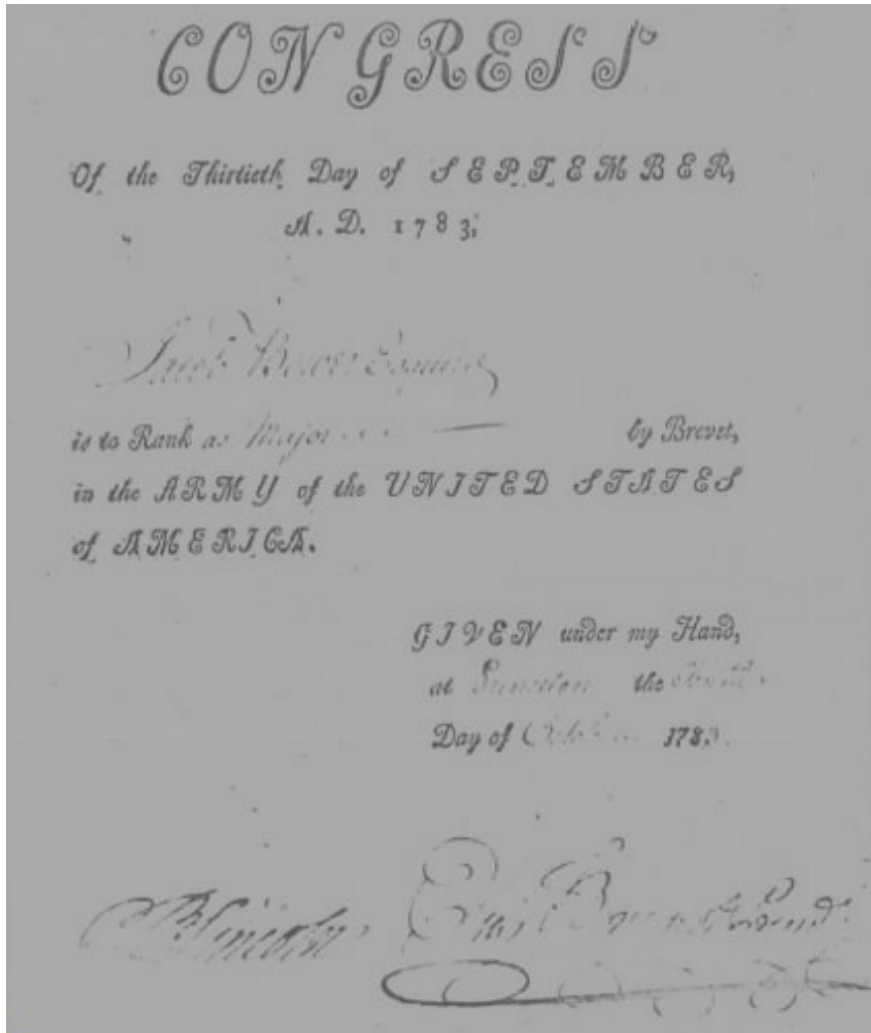 CONGRESS
Of the Thirtieth Day of SEPTEMBER,
A. D. 1783;
Jacob Bower Esquire
is to Rank as Major by Brevet,
in the ARMY of the UNITED STATES
of AMERICA.
GIVEN under my Hand,
at Princeton the
Day of October 1783.
B Lincoln